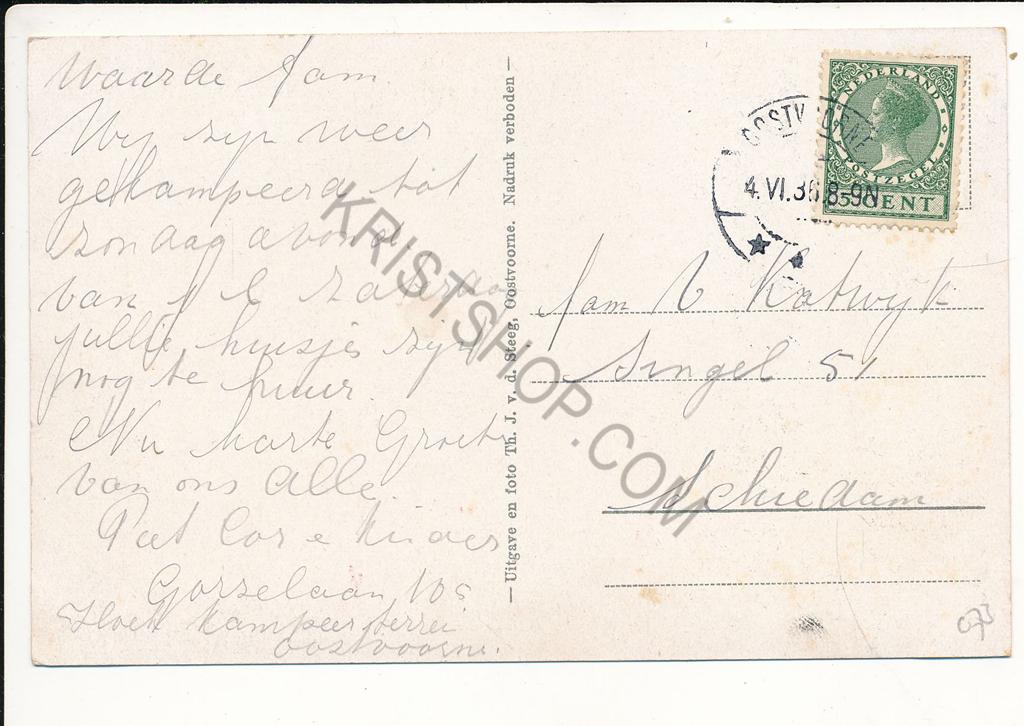 Waarde fam.
Wij zijn weer
gekampeerd tot
zondag avond
van
jullie huisje zijn
nog te huur.
Nu harte Groete
van ons Alle.
Piet Cor e kinders
Gorzelaan 105
Hoek kampeer terrei
oostvoorne.
— Uitgave en foto Th. J. v. d. Steeg, Oostvoorne. Nadruk verboden —
NEDERLAND
POSTZEGEL
5 CENT
OOSTVOORNE
4.VI.36 8-9N
fam V Katwijk
Singel 51
Schiedam
KRISTSHOP.COM